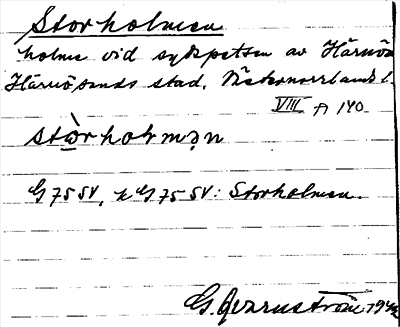 Storholmen
holme vid sydspetsen av Härnön
Härnösands stad. Västernorrlands l.
VIII A 140
stòrhoлmən
G 75 SV, k G 75 SV: Storholmen.
G. Qvarnström 1942